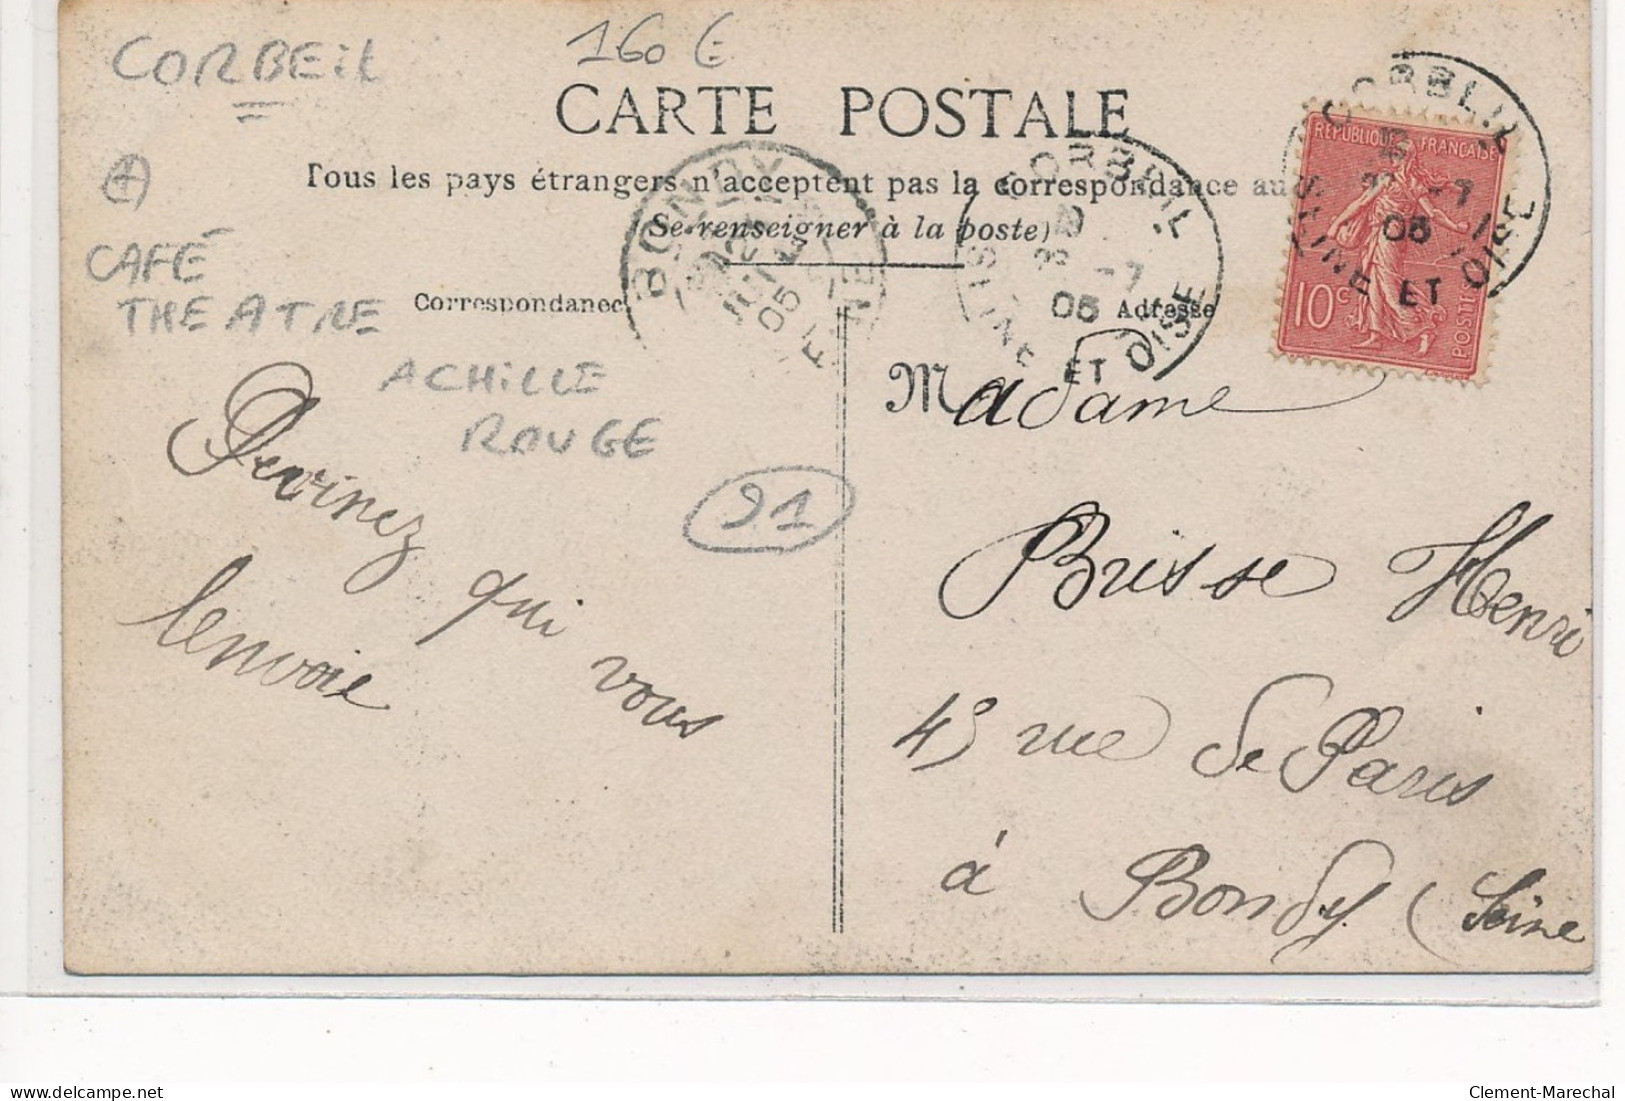 CORBEIL
160 €
CARTE POSTALE
Tous les pays étrangers n'acceptent pas la correspondance au
(Se renseigner à la poste)
CAFÉ
THEATRE
ACHILLE
ROUGE
91
Correspondance
Adresse
BONDY
05
CORBEIL
-7
05
SEINE ET OISE
CORBEIL
-7
05
SEINE ET OISE
REPUBLIQUE FRANÇAISE
10c
POSTE
Devinez
qui
vous
lenvoie
Madame
Brisse Henri
45 rue de Paris
à Bondy (Seine
delcampe.net
Clement-Marechal